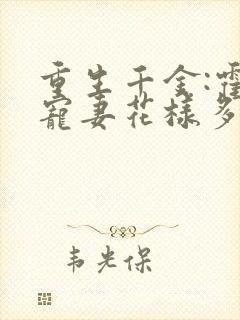 重生千金:霍
宠妻花样多
韦光保